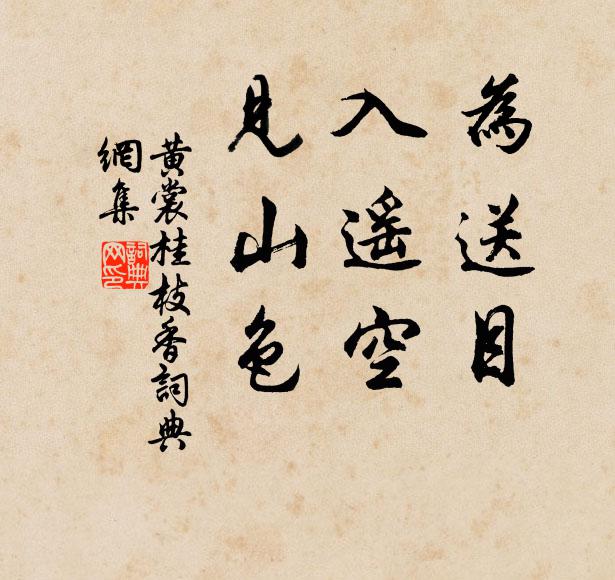 為送目
入遥空
見山色
黄裳桂枝香詞典
網集
詞典
网印